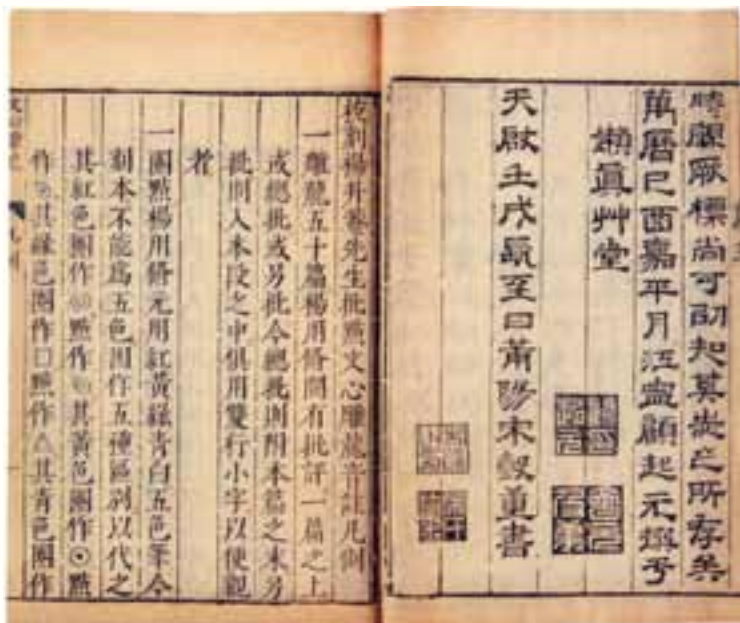 時觀厥標尚可訒知莫歲之所存矣
萬曆己酉嘉平月江寧顧起元撰于
嬾眞艸堂
天啟壬戌長至日莆陽宋瑴重書
校刻楊升菴先生批點文心雕龍音註凡例
一雕龍五十篇楊用脩間有批評一篇之上
或總批或另批今總批則附本篇之末另
批則入本段之中俱用雙行小字以便觀
者
一圈點楊用脩元用紅黃綠青白五色筆今
刻本不能爲五色因作五種區别以代之
其紅色圈作 點作 其黃色圈作⊙點
作 其綠色圈作□點作△其青色圈作